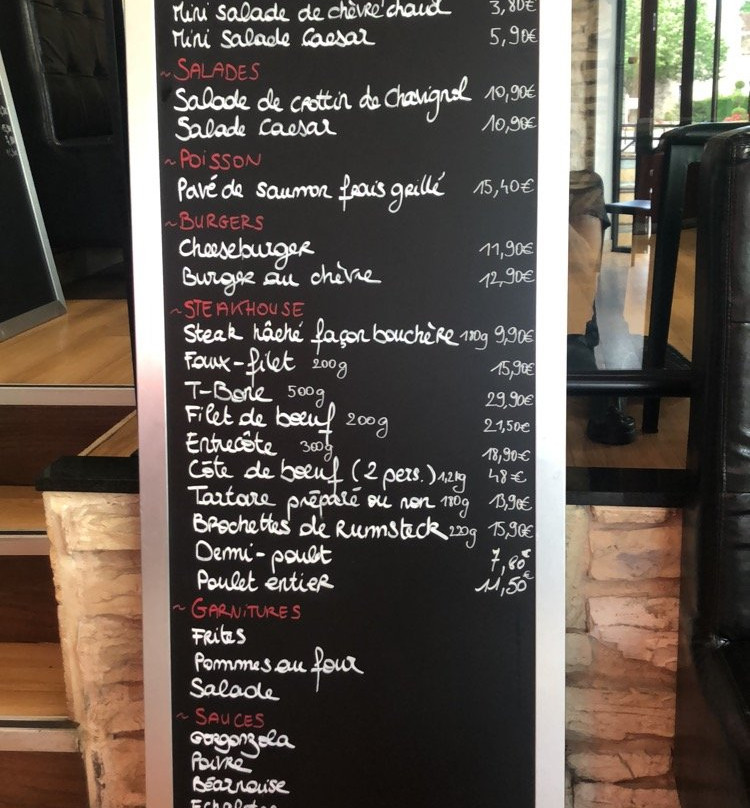 Mini salade de chèvre chaud 3,80€
Mini Salade Caesar 5,90€
~SALADES
Salade de crottin de Chavignol 10,90€
Salade Caesar 10,90€
~POISSON
Pavé de saumon frais grillé 15,40€
~BURGERS
Cheeseburger 11,90€
Burger au chèvre 12,90€
~STEAKHOUSE
Steak hâché façon bouchère 180g 9,90€
Faux-filet 200g 15,90€
T-Bone 500g 29,90€
Filet de boeuf 200g 21,50€
Entrecôte 300g 18,90€
Côte de boeuf (2 pers.) 1,2kg 48€
Tartare préparé ou non 180g 13,90€
Brochettes de Rumsteck 220g 15,90€
Demi-poulet 7,80€
Poulet entier 11,50€
~GARNITURES
Frites
Pommes au four
Salade
~SAUCES
Gorgonzola
Poivre
Béarnaise
Echalotes